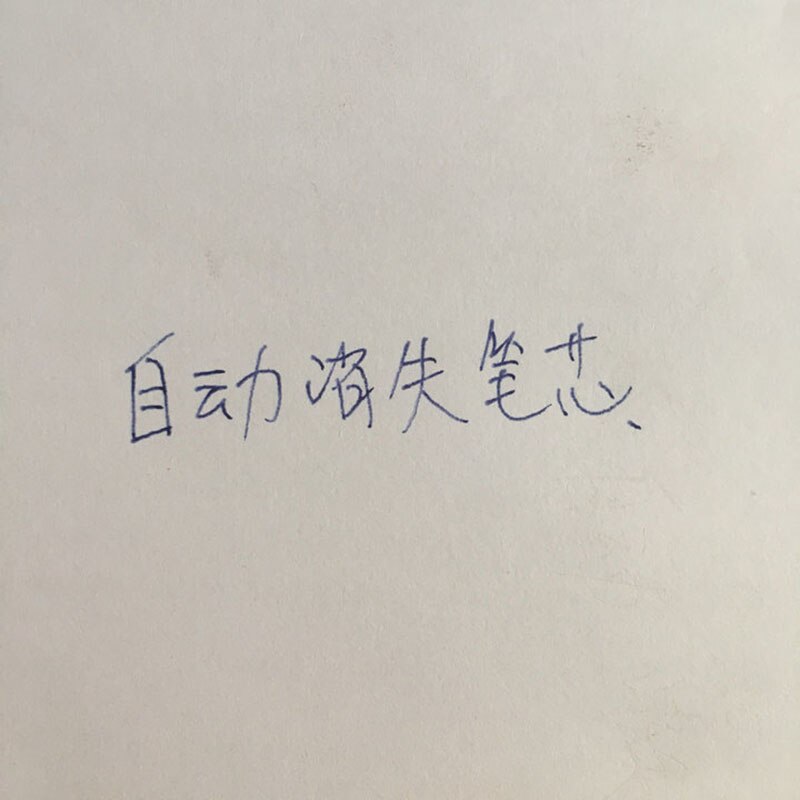 自动消失笔芯、